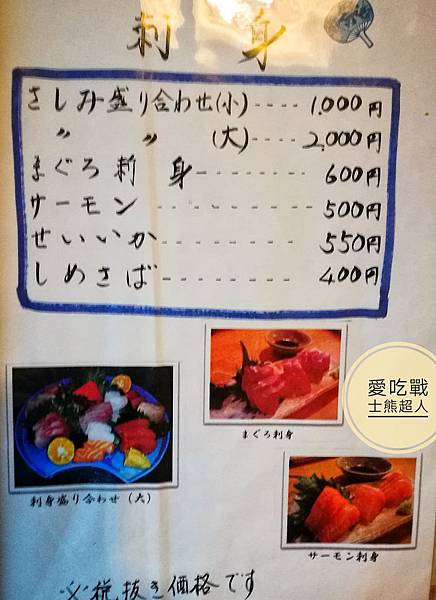 刺身
さしみ盛り合わせ(小)----1,000円
〃 〃 (大)---2,000円
まぐろ刺身--------600円
サーモン---------500円
せいいか--------550円
しめさば--------400円
愛吃戰
士熊超人
まぐろ刺身
刺身盛り合わせ（大）
サーモン刺身
※税抜き価格です